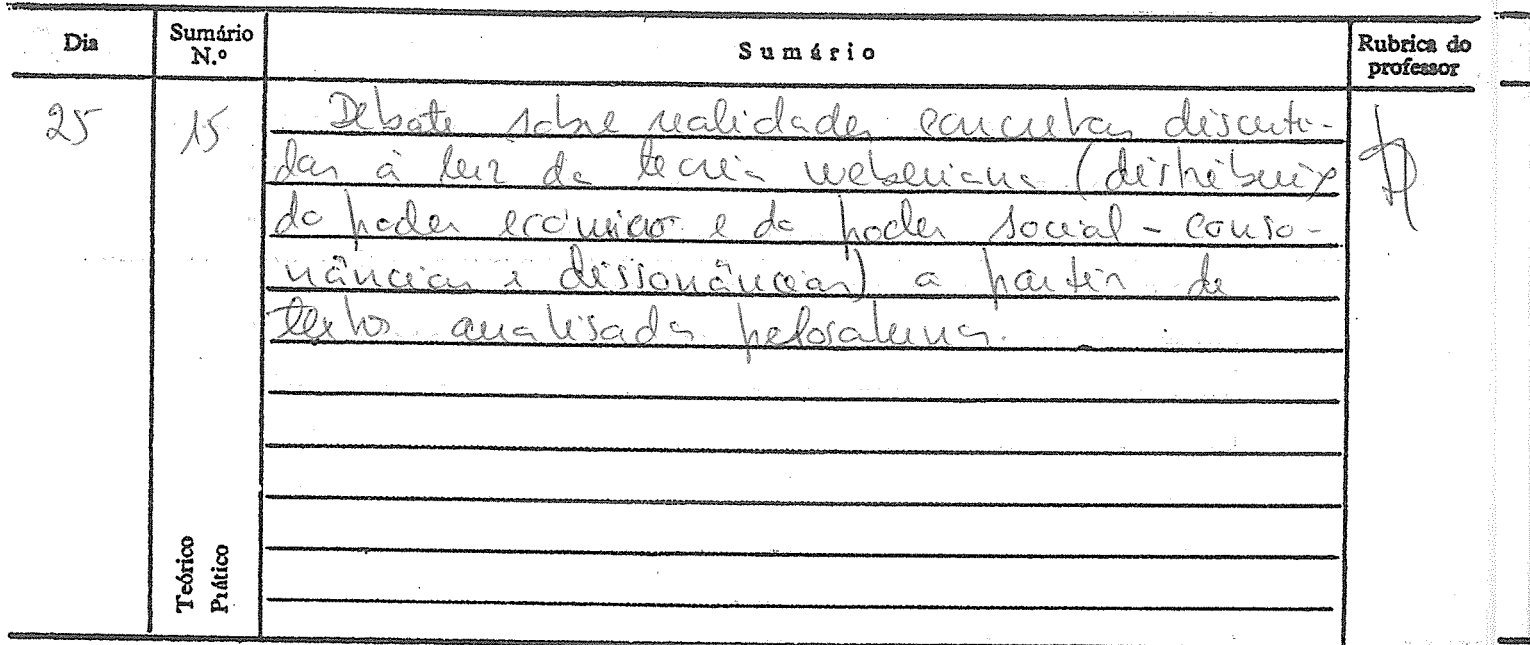 Dia Sumário N.º Sumário Rubrica do professor
25 15 Debate sobre realidades concretas discuti-
das à luz da teoria weberiana (distribuição
do poder económico e do poder social - conso-
nâncias e dissonâncias) a partir de
textos analisados pelos alunos.
Teórico
Prático